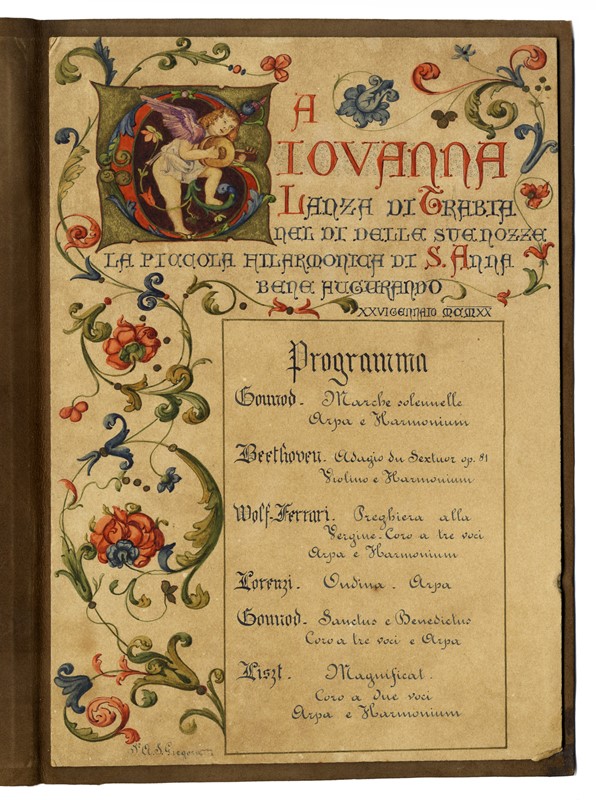 A
GIOVANNA
LANZA DI TRABIA
NEL DI DELLE SUE NOZZE
LA PICCOLA FILARMONICA DI S. ANNA
BENE AUGURANDO
XXVI GENNAIO MCMXX
Programma
Gounod. Marche solennelle
Arpa e Harmonium
Beethoven. Adagio du Sextuor op. 81
Violino e Harmonium
Wolf-Ferrari. Preghiera alla
Vergine-Coro a tre voci
Arpa e Harmonium
Lorenzi. Ondina. Arpa
Gounod. Sanctus e Benedictus
Coro a tre voci e Arpa
Liszt. Magnificat.
Coro a due voci
Arpa e Harmonium